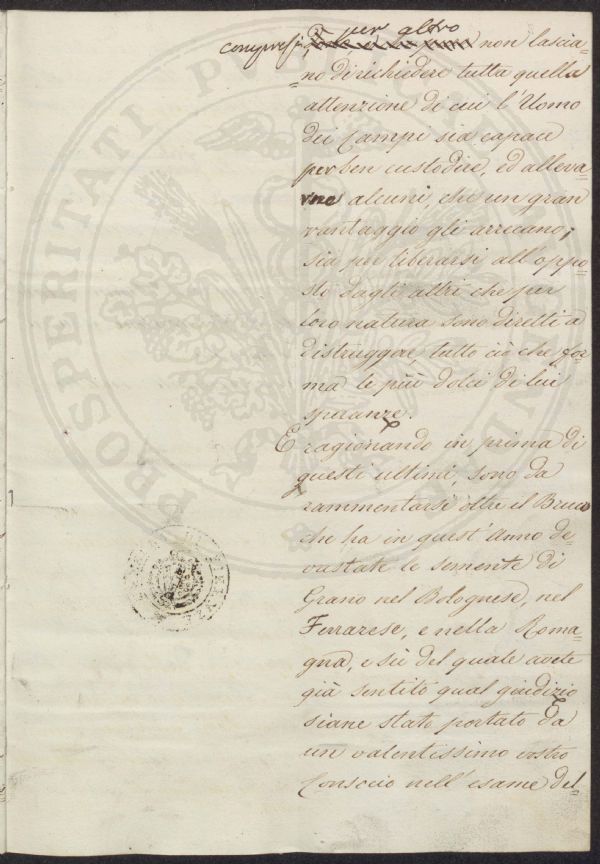 per altro
compresi, non lascia=
=no di richiedere tutta quella
attenzione di cui l'Uomo
dei Campi sia capace
per ben custodire, ed alleva=
rne alcuni, che un gran
vantaggio gli arrecano;
sia per liberarsi all'oppo=
sto dagli altri che per
loro natura sono diretti a
distruggere tutto ciò che for=
ma le più dolci di lui
speranze.
E ragionando in prima di
questi ultimi, sono da
rammentarsi oltre il Bruco
che ha in quest'Anno de=
vastate le semente di
Grano nel Bolognese, nel
Ferrarese, e nella Roma=
gna, e sù del quale avete
già sentito qual giudizio
siane stato portato da
un valentissimo vostro
Consocio nell'esame del=
PROSPERITATI PUBLICAE